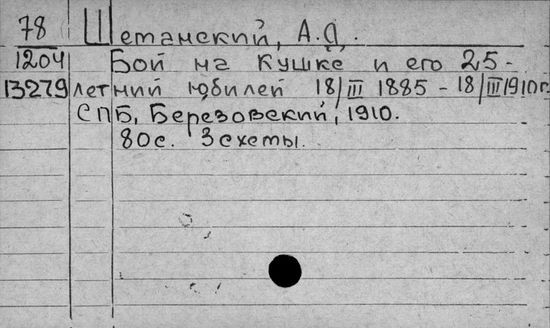 78 Шеманский, А.Д.
1204 Бой на Кушке и его 25-
13279 летний юбилей 18/III 1885 - 18/III 1910 г.
СПБ, Березовский, 1910.
80с. 3 схемы.